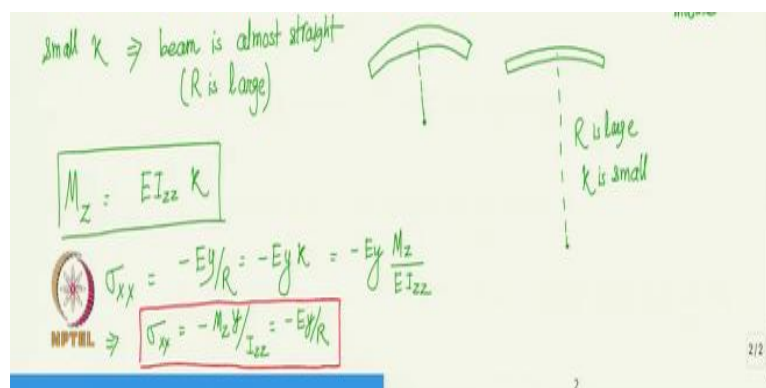 small κ ⇒ beam is almost straight
(R is large)
R is large
κ is small
M_z = EI_zz κ
σ_xx = -Ey/R = -Eyκ = -Ey M_z/EI_zz
NPTEL
⇒ σ_xx = -M_z y/I_zz = -Ey/R
2/2